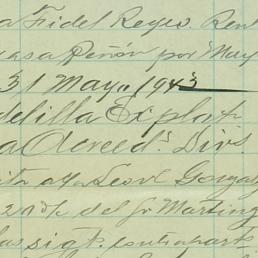 a Fidel Reyes. Ren
casa Peñón por May
31 Mayo 1943
delilla Explot
a Acreed.s Divs.
ita a/a Leovl. Gonzas
20% del Sr Martíng
las sigt. contrapart